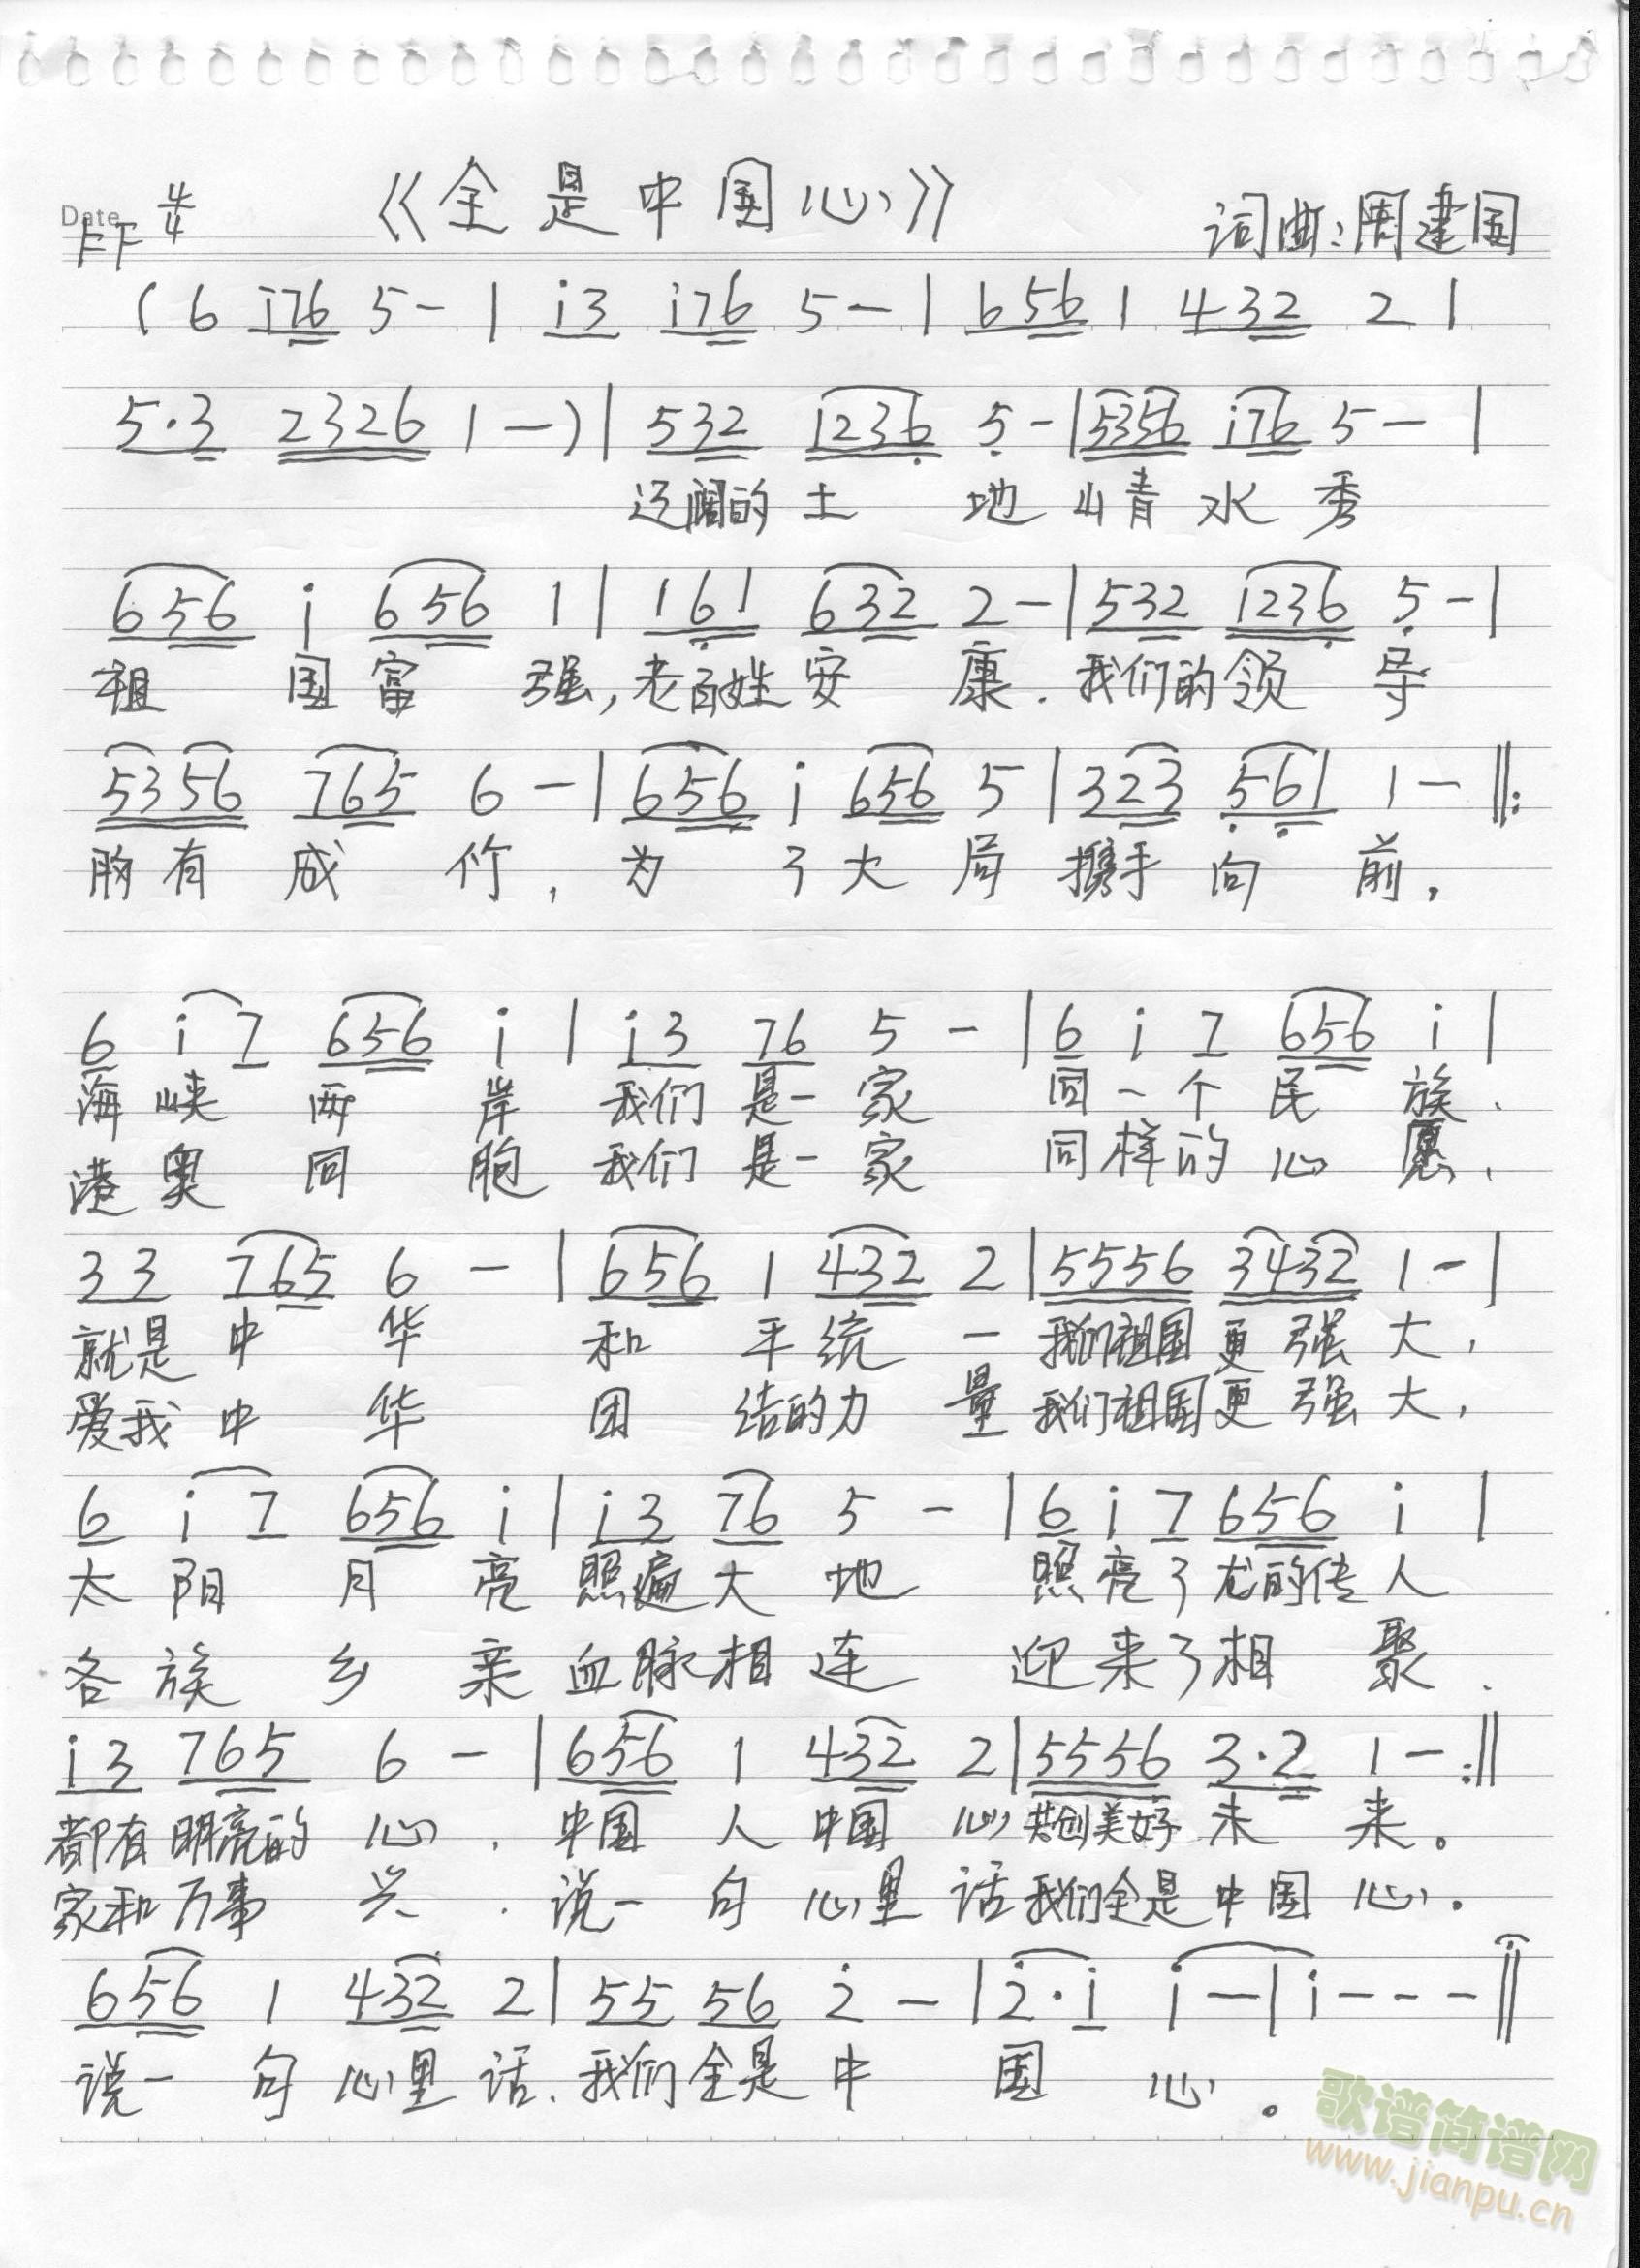 Date
4/4 《全是中国心》 词曲:周建国
( 6 i76 5 - | i3 i76 5 - | 656 1 432 2 |
5·3 2326 1 - ) | 532 1236 5 - | 5356 i76 5 - |
辽阔的土 地 山青水 秀
656 i 656 1 | 161 632 2 - | 532 1236 5 - |
祖 国富 强,老百姓安 康.我们的领 导
5356 765 6 - | 656 i 656 5 | 323 561 1 - ‖:
胸有 成 竹,为 了大 局 携手 向 前,
6 i 7 656 i | i3 76 5 - | 6 i 7 656 i |
海 峡 两 岸 我们 是一 家 同 一 个 民 族、
港 奥 同 胞 我们 是一 家 同样的 心 愿、
33 765 6 - | 656 1 432 2 | 5556 3432 1 - |
就是 中 华 和 平 统 一 我们祖国 更 强 大,
爱我 中 华 团 结的力 量 我们祖国更 强 大,
6 i 7 656 i | i3 76 5 - | 6 i 7 656 i |
太 阳 月 亮 照遍大 地 照亮了龙的传人
各 族 乡 亲 血脉相 连 迎来了相 聚.
i3 765 6 - | 656 1 432 2 | 5556 3·2 1 - :‖
都有明亮的 心、中国 人 中国 心 共创美好 未 来。
家和万事 兴.说一 句 心里 话 我们全是 中国 心。
656 1 432 2 | 55 56 2 - | 2·i i - | i - - - ‖
说一 句 心里 话、我们 全是 中 国 心。
歌谱简谱网
www.jianpu.cn